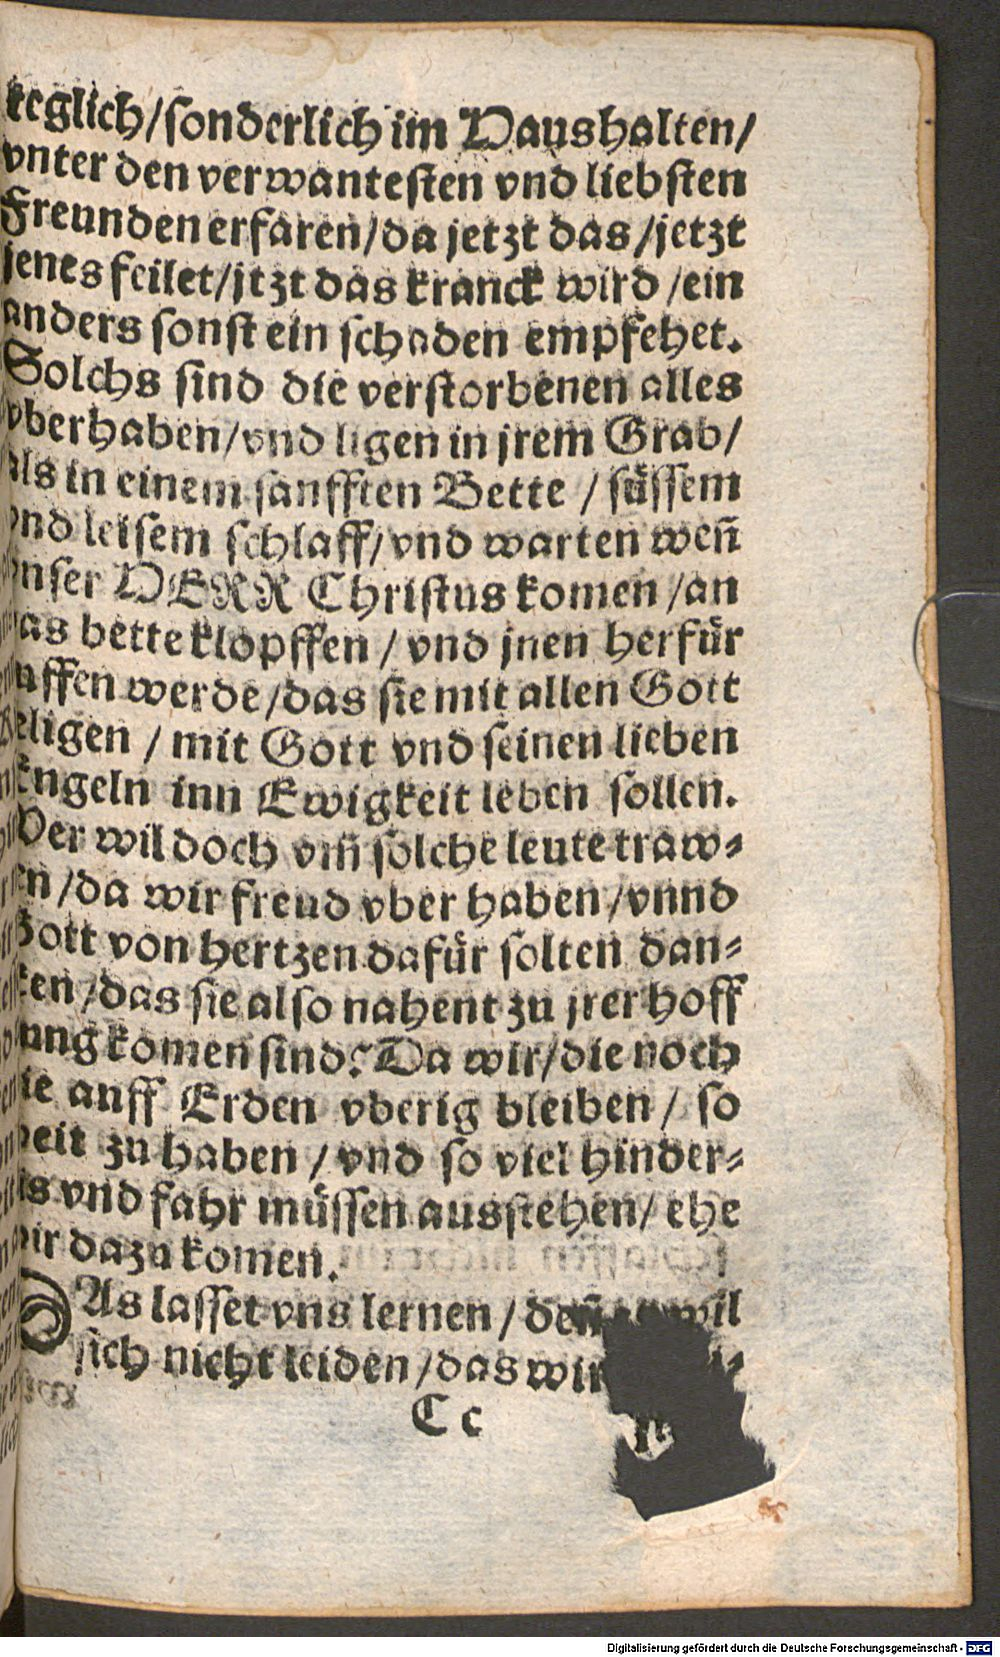 teglich/sonderlich im Haushalten/
vnter den verwantesten vnd liebsten
Freunden erfaren/da jetzt das/jetzt
jenes feilet/jtzt das kranck wird/ein
anders sonst ein schaden empfehet.
Solchs sind die verstorbenen alles
vberhaben/vnd ligen in jrem Grab/
als in einem sanfften Bette/süssem
vnd leisem schlaff/vnd warten weñ
vnser HERR Christus komen/an
as bette klopffen/vnd jnen herfür
uffen werde/das sie mit allen Gott
eligen/mit Gott vnd seinen lieben
Engeln inn Ewigkeit leben sollen.
Wer wil doch vm̃ solche leute traw-
en/da wir freud vber haben/vnnd
Gott von hertzen dafür solten dan-
ken/das sie also nahent zu jrer hoff
ung komen sind? Da wir/die noch
ie auff Erden vberig bleiben/so
eit zu haben/vnd so viel hinder-
is vnd fahr müssen ausstehen/ehe
wir dazu komen.
DAs lasset vns lernen/deñ wil
sich nicht leiden/das wir
C c
Digitalisierung gefördert durch die Deutsche Forschungsgemeinschaft - DFG